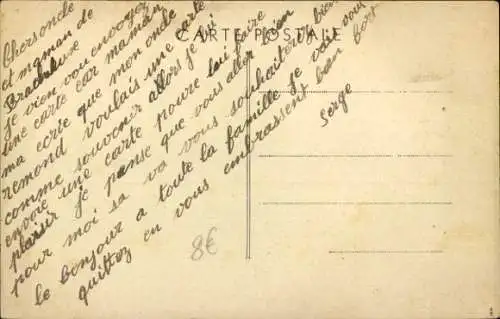 CARTE POSTALE
Cher oncle
et maman de
je vien vou envoyez
une carte car maman
ma ecrie que mon oncle
remond voulais une carte
comme souvenir allors je lui
envoie une carte poure lui faire
plaisir je panse que vous aller bien
pour moi sa va vous souhaiterez bien
le bonjour a toute la famille je vais vous
quittez en vous embrassent bien fort
Serge
8€